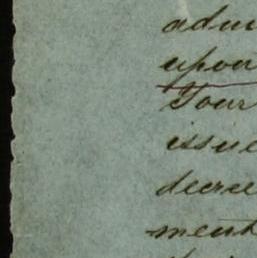 adm
upon
Your
issue
decree
ment